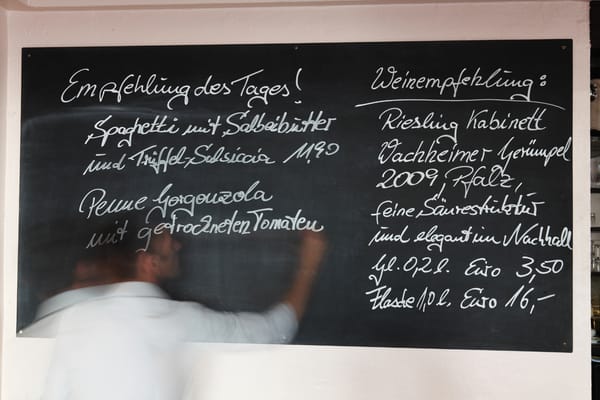 Empfehlung des Tages!
Spaghetti mit Salbeibutter
und Trüffel-Salsiccia 11,90
Penne Gorgonzola
mit getrockneten Tomaten
Weinempfehlung:
Riesling Kabinett
Wachheimer Gerümpel
2009, Pfalz,
feine Säurestruktur
und elegant im Nachhall
Gl. 0,2 l. Euro 3,50
Flasche 1,0 l. Euro 16,-